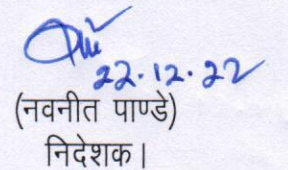 22.12.22
(नवनीत पाण्डे)
निदेशक।